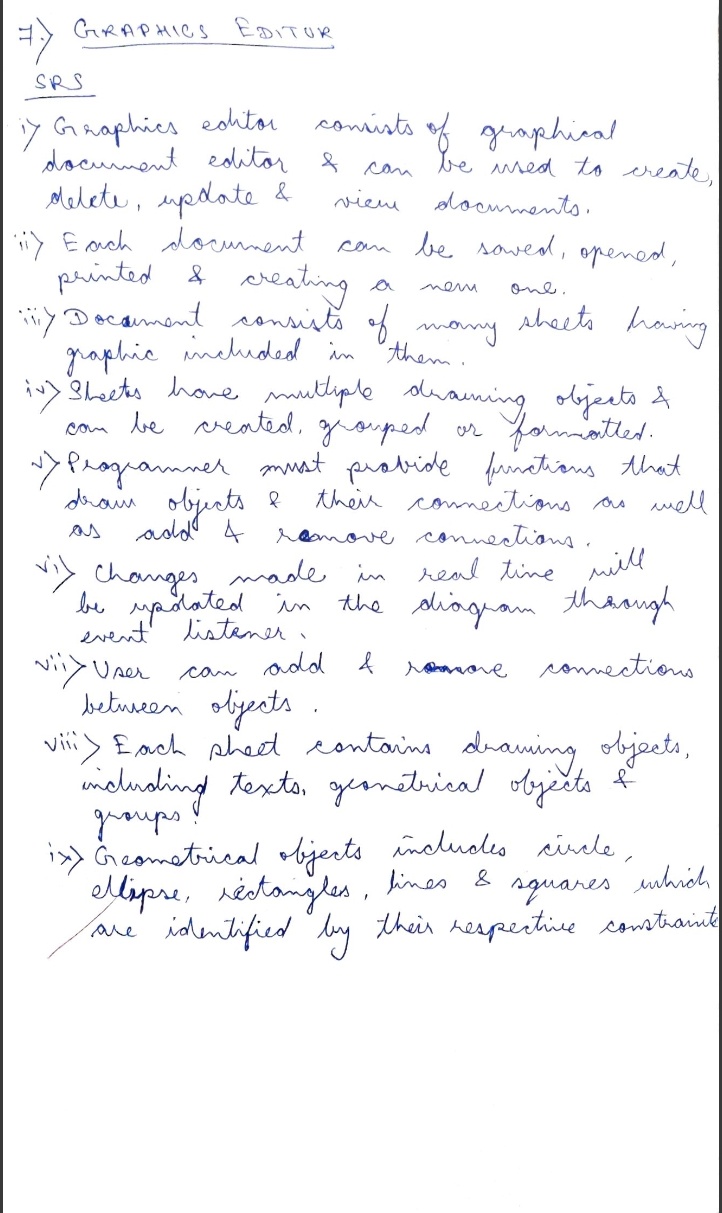 7.) GRAPHICS EDITOR
SRS
i) Graphics editor consists of graphical
document editor & can be used to create,
delete, update & view documents.
ii) Each document can be saved, opened,
printed & creating a new one.
iii) Document consists of many sheets having
graphic included in them.
iv) Sheets have multiple drawing objects &
can be created, grouped or formatted.
v) Programmer must provide functions that
draw objects & their connections as well
as add & remove connections.
vi) Changes made in real time will
be updated in the diagram through
event listener.
vii) User can add & remove connections
between objects.
viii) Each sheet contains drawing objects,
including texts, geometrical objects &
groups.
ix) Geometrical objects includes circle,
ellipse, rectangles, lines & squares which
are identified by their respective constraints